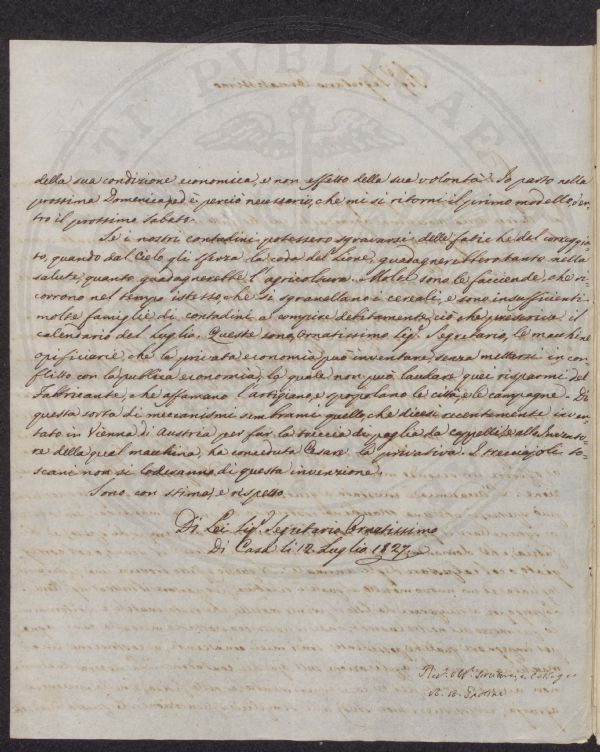 della sua condizione economica, e non effetto della sua volontà. Io parto nella
prossima Domenica, ed è perciò necessario, che mi si ritorni il primo modello en=
tro il prossimo Sabato.
Se i nostri contadini potessero sgravarsi delle fatiche del coreggia=
to, quando dal Cielo gli sferza la coda del Leone, guadagnerebbero tanto nella
salute, quanto guadagnerebbe l'agricoltura. Molte sono le faccende, che ri=
corrono nel tempo istesso, che si sgranellano i cereali, e sono insufficienti
molte famiglie di contadini a compire debitamente, ciò che prescrive il
calendario del Luglio. Queste sono, Ornatissimo Sig.r Segretario, le macchine
opificiarie, che la privata economia può inventare, senza mettersi in con=
flitto con la publica economia, la quale non può laudare quei risparmi del
Fabbricante, che affamano l'artigiano, e spopolano le città, e le campagne. Di
questa sorta di meccanismi sembrami quello, che dicesi recentemente inven=
tato in Vienna di Austria per far la treccia di paglia da cappelli, e alla Invento=
re della qual macchina, ha conceduta Cesare la privativa. I trecciajoli to=
scani non si loderanno di questa invenzione.
Sono con stima, e rispetto
Di Lei Sig.r Segretario Ornatissimo
Di Casa li 12. Luglio 1827